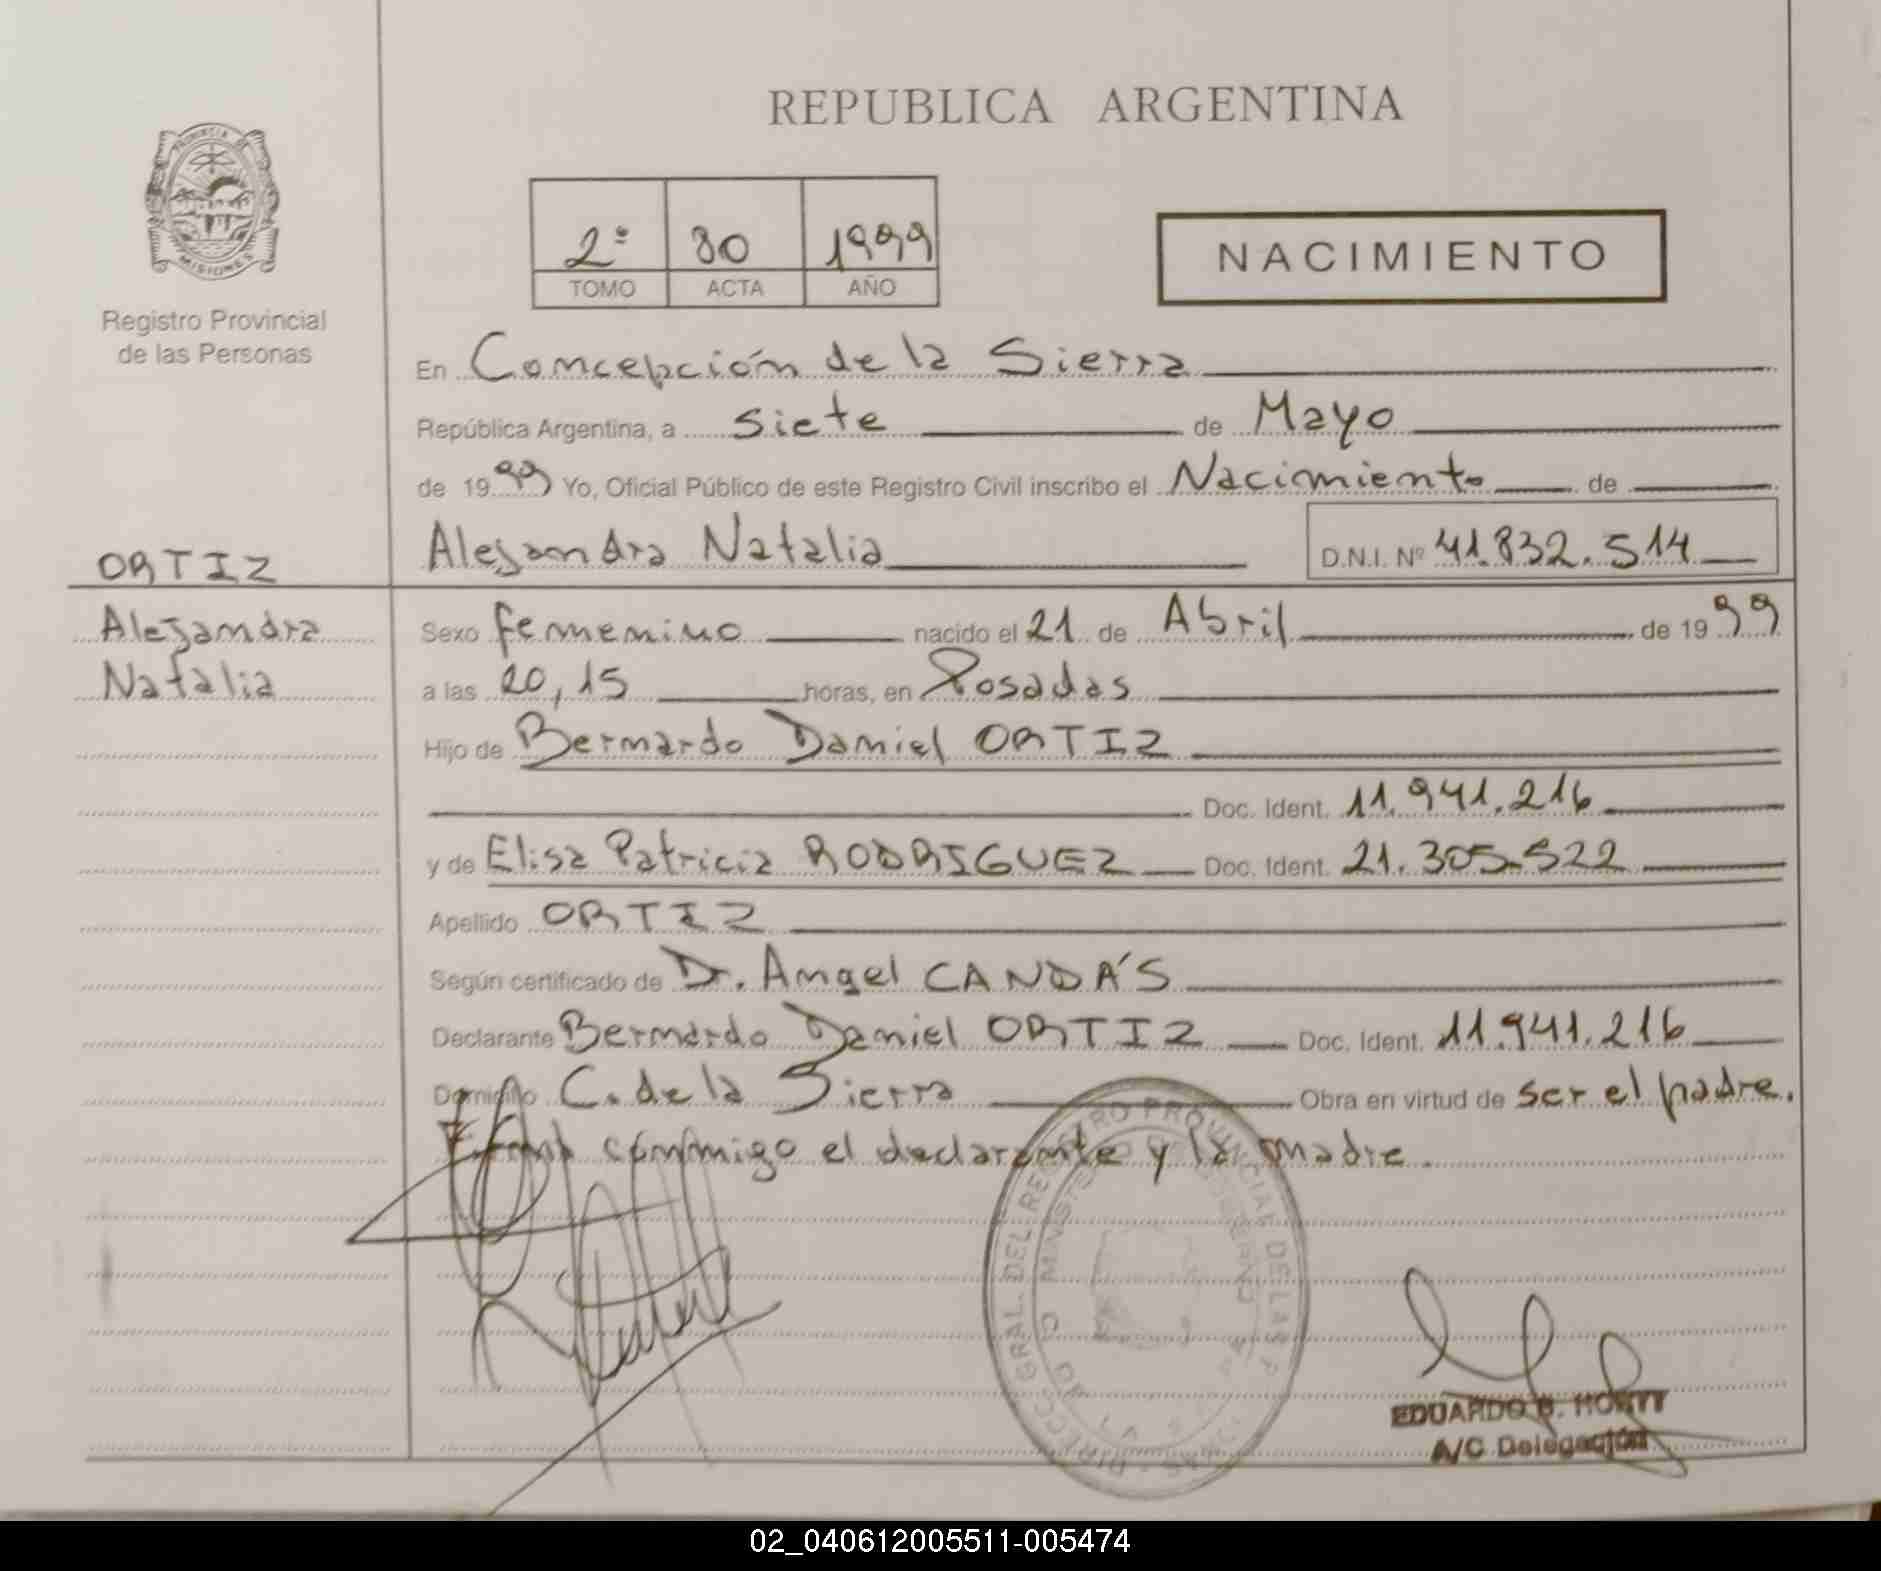 REPUBLICA ARGENTINA
PROVINCIA DE MISIONES
Registro Provincial
de las Personas
2º 80 1999
TOMO ACTA AÑO
NACIMIENTO
En Concepción de la Sierra
República Argentina, a siete de Mayo
de 1999 Yo, Oficial Público de este Registro Civil inscribo el Nacimiento de
ORTIZ
Alejandra Natalia D.N.I. Nº 41.832.514
Alejandra
Natalia
Sexo femenino nacido el 21 de Abril de 1999
a las 20,15 horas, en Posadas
Hijo de Bernardo Daniel ORTIZ
Doc. Ident. 11.941.216
y de Elisa Patricia RODRIGUEZ Doc. Ident. 21.305.522
Apellido ORTIZ
Según certificado de Dr. Angel CANDA'S
Declarante Bernardo Daniel ORTIZ Doc. Ident. 11.941.216
Domicilio C. de la Sierra Obra en virtud de ser el padre.
Firman conmigo el declarante y la madre.
DIRECC. GRAL. DEL REGISTRO PROVINCIAL DE LAS P
EDUARDO
A/C Delegación
02_040612005511-005474